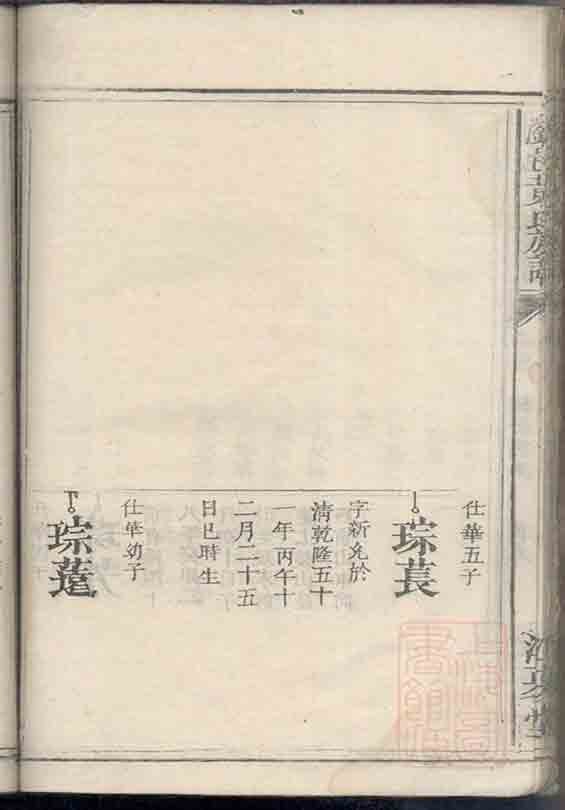 氏族譜
堂
仕華五子
琮萇
字新兊於
清乾隆五十
一年丙午十
二月二十五
日巳時生
仕華幼子